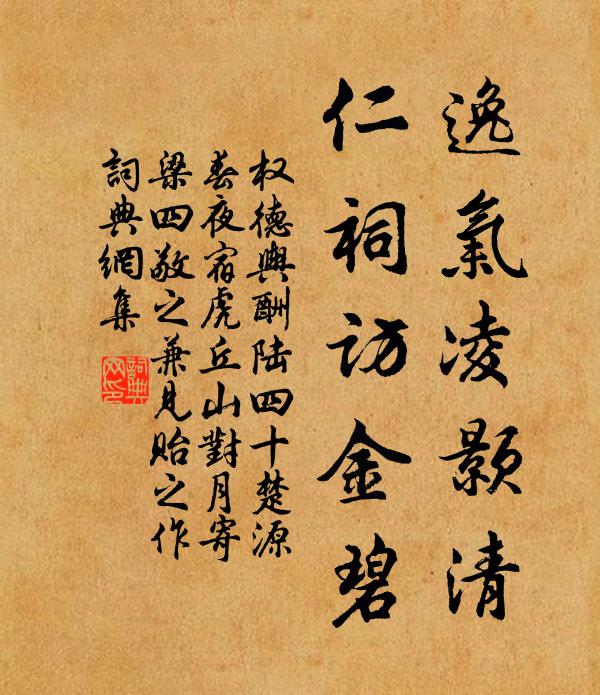 逸氣凌顥清
仁祠访金碧
权德輿酬陆四十楚源
春夜宿虎丘山對月寄
梁四敬之兼見貽之作
詞典網集
詞典网印